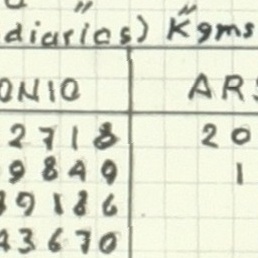 diarios) Kgms
ONIO ARS
2718 20
9849 1
9186
43670